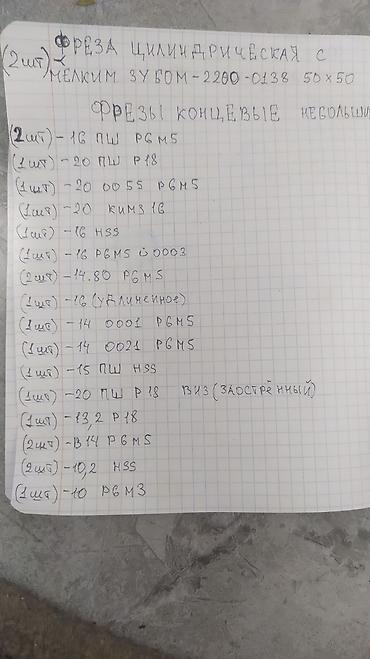 ФРЕЗА ЦИЛИНДРИЧЕСКАЯ С
(2шт) МЕЛКИМ ЗУБОМ-2200-0138 50×50
ФРЕЗЫ КОНЦЕВЫЕ НЕБОЛЬШИ
(2шт)-16 ПШ Р6М5
(1шт)-20 ПШ Р18
(1шт)-20 0055 Р6М5
(1шт)-20 КИМЗ 16
(1шт)-16 HSS
(1шт)-16 Р6М5 0003
(2шт)-14.80 Р6М5
(1шт)-16(удлиненное)
(1шт)-14 0001 Р6М5
(1шт)-14 0021 Р6М5
(1шт)-15 ПШ HSS
(1шт)-20 ПШ Р18 ВИЗ(ЗАОСТРЁННЫЙ)
(1шт)-13,2 Р18
(2шт)-В14 Р6М5
(2шт)-10,2 HSS
(1шт)-10 Р6М3